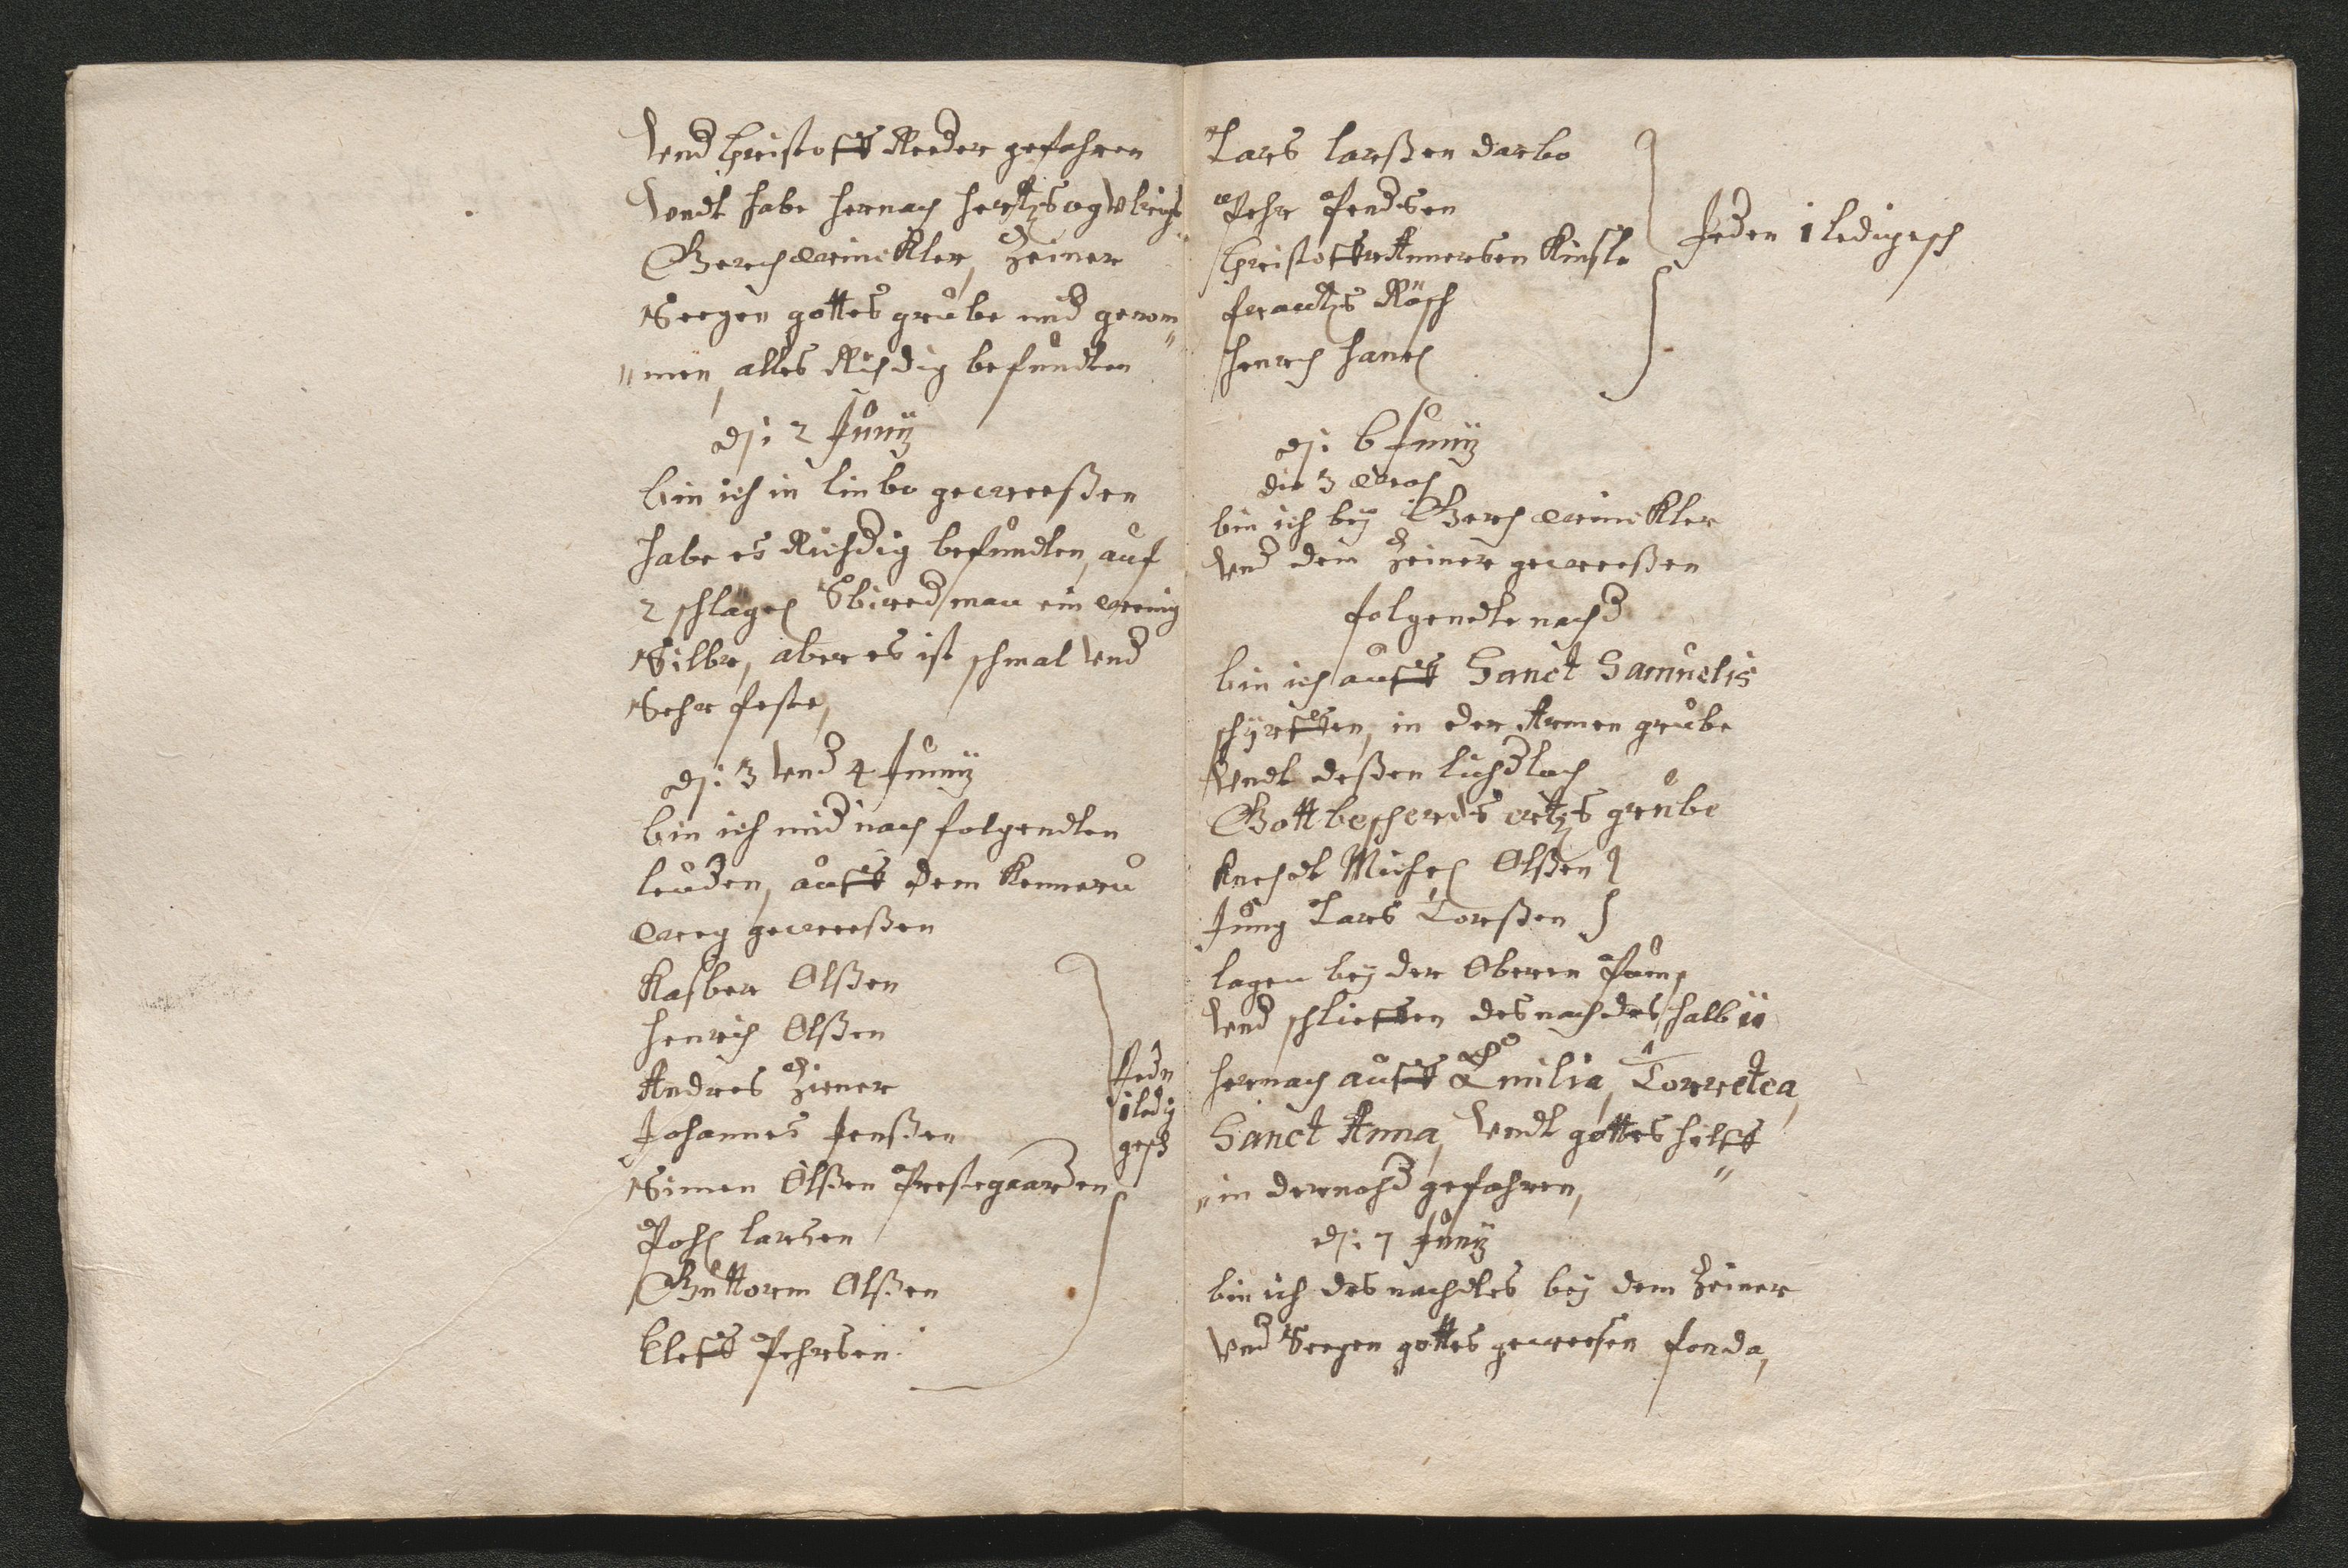 Vnd Christoff Reeder gefahren
Vndt habe hernach hertzog Vlrichs
Berchwinckler, Zeiner
Seegen gottes grube mid genom
"men, alles Richdig befundten
dj: 2 Junÿ
bin ich in linbo geweeßen
habe es Richdig befundten, auf
2 schlägel Sbired man ein wenig
Silber, aber es ist schmal vnd
Sehr feste,
dj: 3 vnd 4 Junÿ
bin ich mid nach folgendten
leuden, auff dem Kenneru
weeg geweeßen
Kasber Olßen
Henrich Olßen
Andres Ziener
Johannes Jenßen
Simen Olßen Prestegaarden
Pohl larsen
Guttorm Olßen
Cleff Pehrsen
Jedn
1 ledig
gesch
Lars larßen darbo
Pehr Pendsen
Christoffer Annersen Kinsle
frantzs Rösch
Henrch Hanel
Jeden 1 ledigesch
dj: 6 Junÿ
die 3 woch
bin ich beÿ Berchwinckler
Vnd dem Zeiner geweeßen
folgendte nachd
bin ich auff Sanct Samuelis
schyrffen, in der Armen grube
Vndt deßen lichdlach
Gott bescherds ertzs grube
Knechdt Michel Olßen
Jung Lars Torßen
lagen beÿ der Oberen Pump
Vnd schlieffen des nachdes halb ii
hernach auff Emilia, Torretea,
Sanct Anna, Vndt gottes hilff
"in dernahd gefahren,
dj: 7 Junÿ
bin ich des nachdtes beÿ dem Zeiner
Vnd Seegen gottes geweesen fonda,